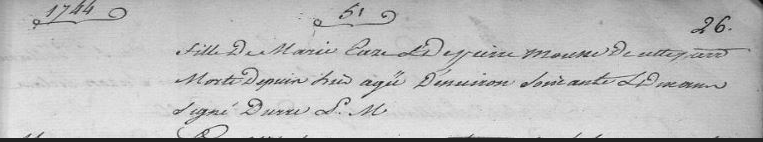 1744 51 26.
fille De Marie Caze Et De pierre mousse De cette parr
Morte Depuis hier agée D'environ Soixante Et
Signé Durre P. M